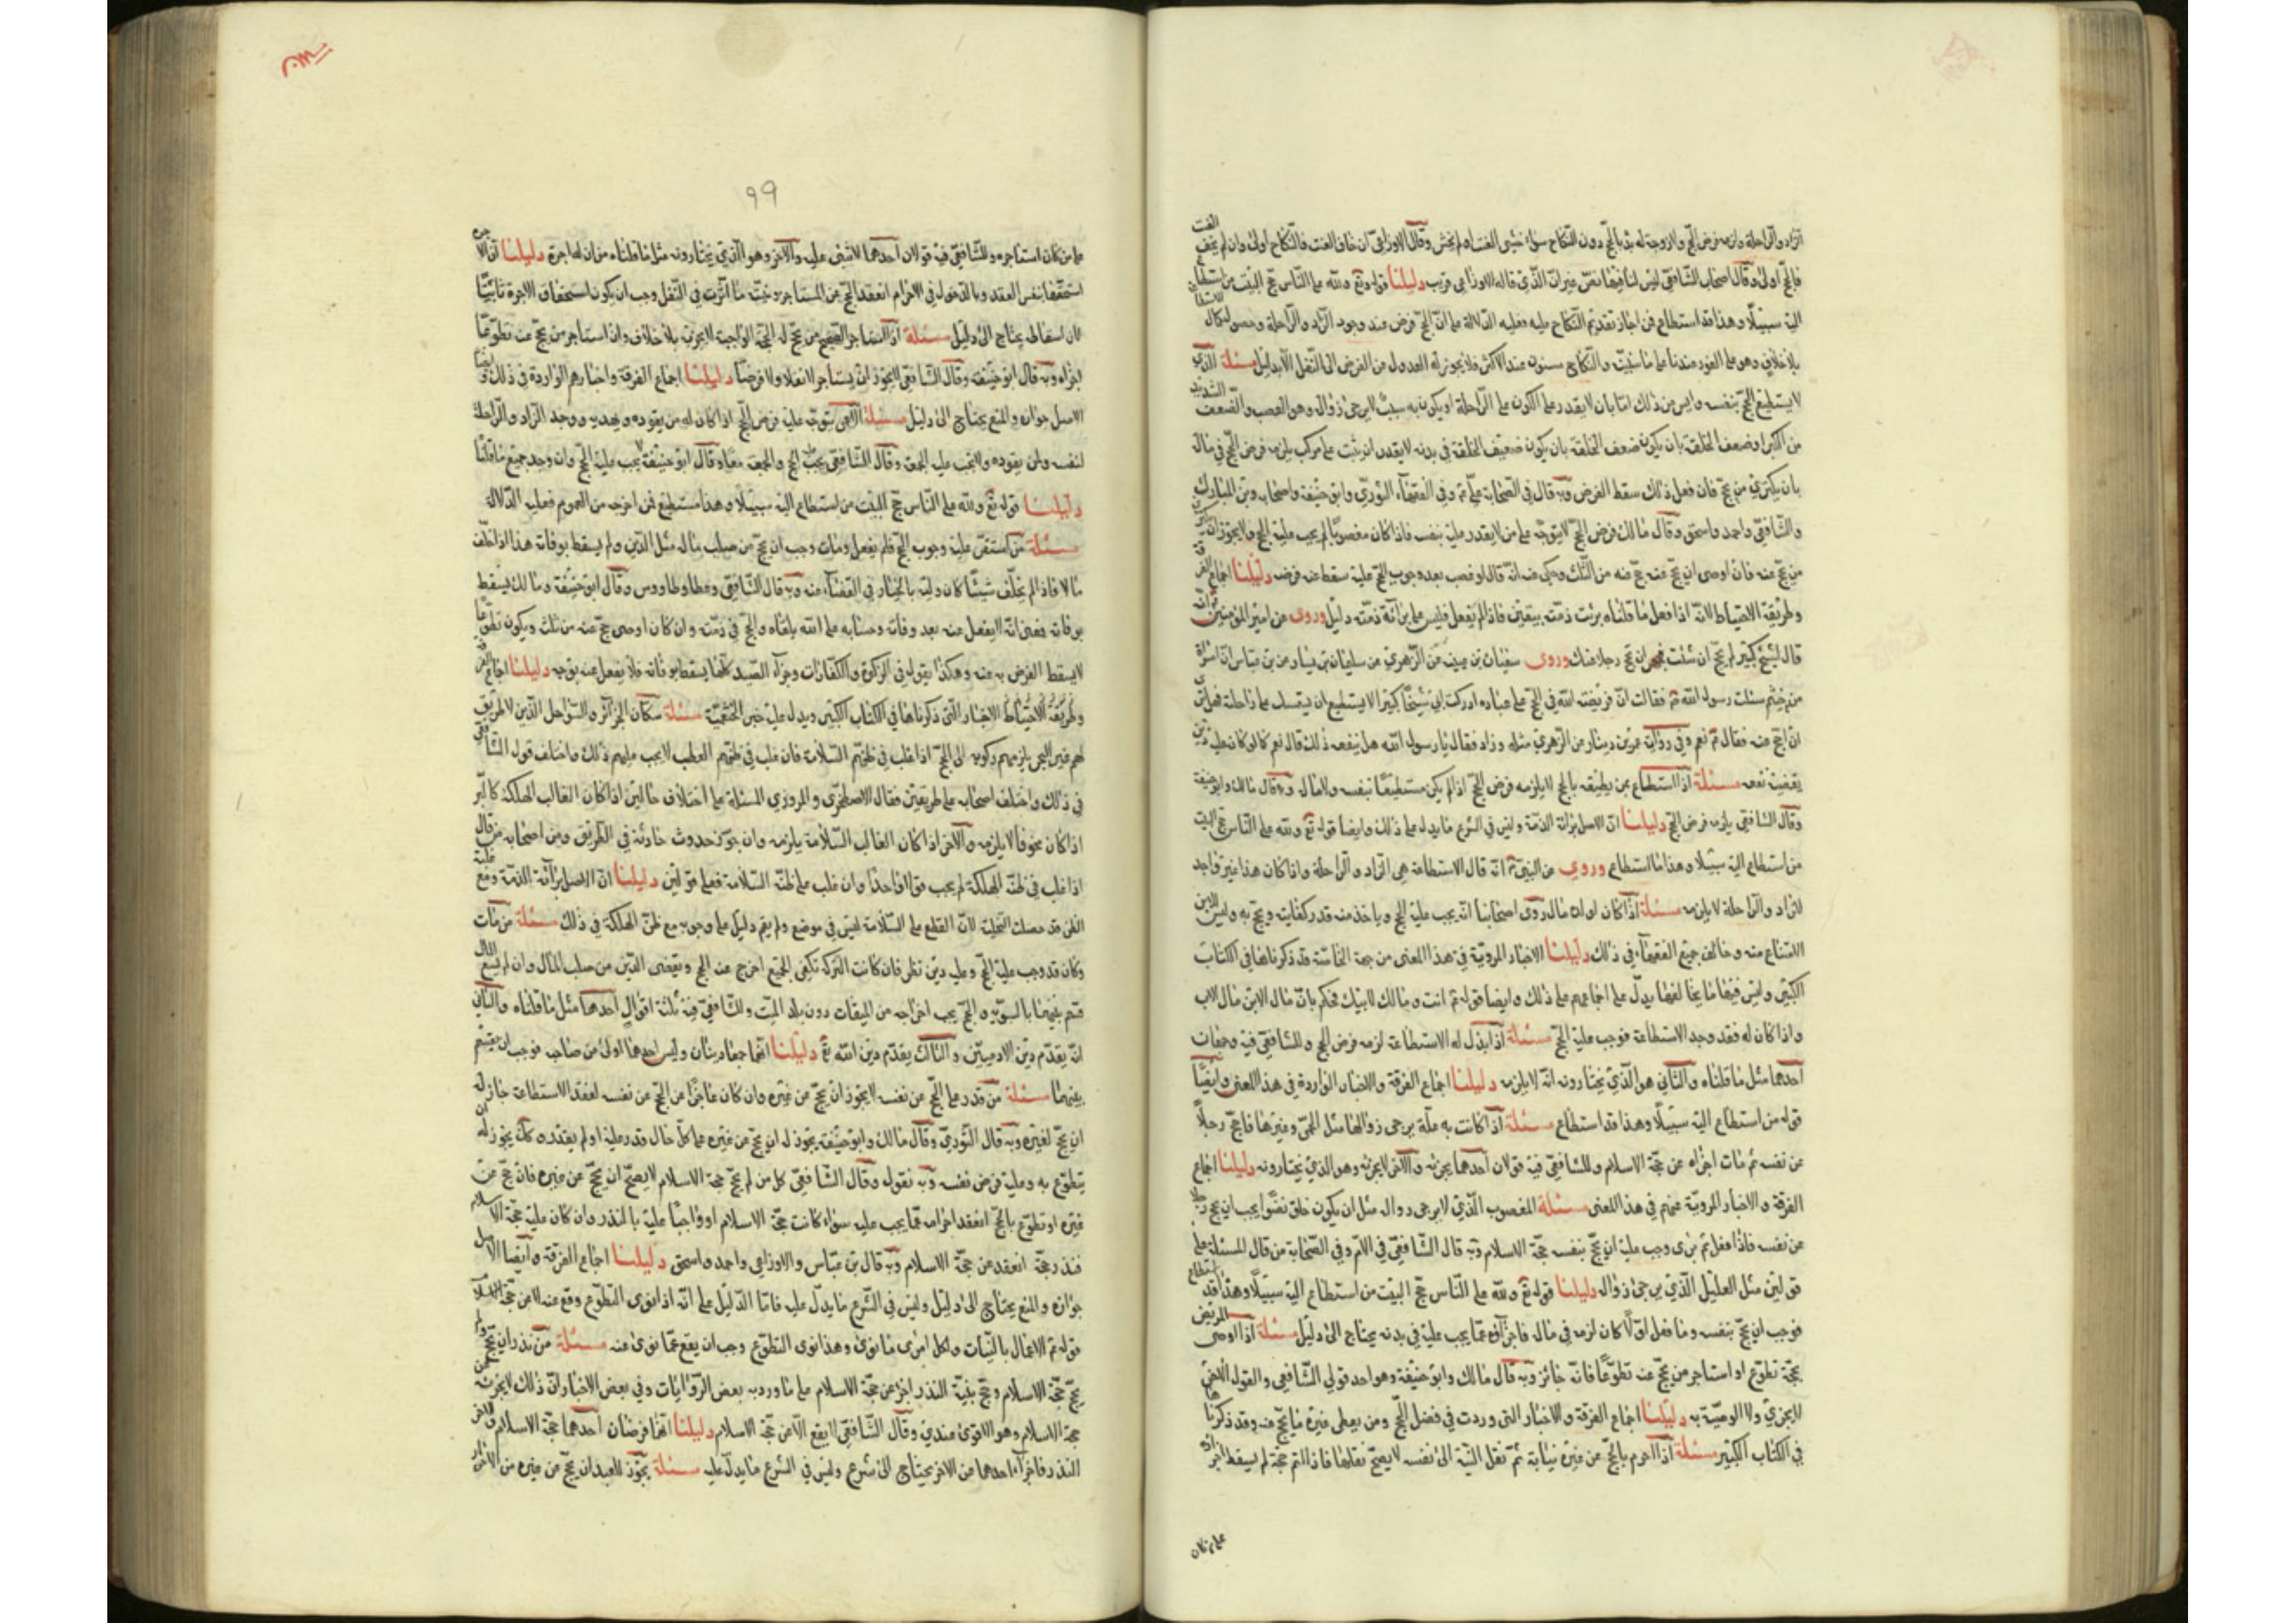 الزاد والراحلة ولزمه فرض الحج ولا زوجة له بدأ بالحج دون النكاح سواء خشي العنت او لم يخش وقال الاوزاعي ان خاف العنت فالنكاح اولى وان لم يخف العنت
فالحج اولى وقال اصحاب الشافعي ليس لنا فيها نص غير ان الذي قاله الاوزاعي قريب دليلنا قوله تع ولله على الناس حج البيت من استطاع
اليه سبيلا وهذا قد استطاع فمن اجاز تقديم النكاح عليه فعليه الدلالة على ان الحج فرض عند وجود الزاد والراحلة وحصول كمال الاستطا
بلا خلاف وهو على الفور عندنا على ما سنبينه والنكاح مسنون عند الاكثر فلا يجوز له العدول من الفرض الى النفل الا بدليل مسئلة الذي
لا يستطيع الحج بنفسه وايس من ذلك اما بان لا يقدر على الكون على الراحلة او يكون به سبب لا يرجى زواله وهو العضب والضعف الشديد
من الكبر او ضعف الخلقة بان يكون ضعيف الخلقة في بدنه لا يقدر ان يثبت على مركب يلزمه فرض الحج في ماله
بان يكتري من يحج فان فعل ذلك سقط الفرض وبه قال في الصحابة علي ع وفي الفقهاء الثوري وابو حنيفة واصحابه وبن المبارك
والشافعي واحمد واسحق وقال مالك فرض الحج لا يتوجه على من لا يقدر عليه بنفسه فاذا كان معضوبا لم يجب عليه الحج ولا يجوز ان يكتري
من يحج عنه فان اوصى ان يحج عنه حج عنه من الثلث وحكي عنه انه قال لو عضب بعد وجوب الحج عليه سقط عنه فرضه دليلنا اجماع الفرقة
وطريقة الاحتياط لانه اذا فعل ما قلناه برئت ذمته بيقين فاذا لم يفعل فليس على برائة ذمته دليل وروى عن امير المؤمنين ع انه
قال لشيخ كبير لم يحج ان شئت فجهز رجلا يحج عنك وروى سفيان بن عيينه عن الزهري عن سليمان بن يسار عن بن عباس ان امرأة
من خثعم سئلت رسول الله ص فقالت ان فريضة الله في الحج على عباده ادركت ابي شيخا كبيرا لا يستطيع ان يستمسك على راحلة فهل ترى
ان احج عنه فقال ع نعم وفي رواية عمر بن دينار عن الزهري مثله وزاد فقال يا رسول الله هل ينفعه ذلك قال نعم كما لو كان عليه دين
يقضيه نفعه مسئلة اذا استطاع بمن يطيعه بالحج لا يلزمه فرض الحج اذا لم يكن مستطيعا بنفسه ولا مال وبه قال مالك وابو حنيفة
وقال الشافعي يلزمه فرض الحج دليلنا ان الاصل برائة الذمة وليس في الشرع ما يدل على ذلك وايضا قوله تع ولله على الناس حج البيت
من استطاع اليه سبيلا وهذا ما استطاع وروي عن النبي ص انه قال الاستطاعة هي الزاد والراحلة واذا كان هذا غير واجد
للزاد والراحلة لا يلزمه مسئلة اذا كان لولده مال روى اصحابنا انه يجب عليه الحج وياخذ منه قدر كفايته ويحج به وليس للابن
الامتناع منه وخالف جميع الفقهاء في ذلك دليلنا الاخبار المروية في هذا المعنى من جهة الخاصة قد ذكرناها في الكتاب
الكبير وليس فيها ما يخالفها يدل على اجماعهم على ذلك وايضا قوله ع انت ومالك لابيك فحكم بان مال الابن مال الاب
واذا كان له فقد وجد الاستطاعة فوجب عليه الحج مسئلة اذا بذل له الاستطاعة لزمه فرض الحج وللشافعي فيه وجهان
احدهما مثل ما قلناه والثاني هو الذي يختارونه انه لا يلزمه دليلنا اجماع الفرقة والاخبار الواردة في هذا المعنى وايضا
قوله من استطاع اليه سبيلا وهذا قد استطاع مسئلة اذا كانت به علة يرجى زوالها مثل الحمى وغيرها فاحج رجلا
عن نفسه ثم مات اجزأه عن حجة الاسلام وللشافعي فيه قولان احدهما يجزئه والآخر لا يجزئه وهو الذي يختارونه دليلنا اجماع
الفرقة والاخبار المروية عنهم في هذا المعنى مسئلة المعضوب الذي لا يرجى زواله مثل ان يكون خلق نضوا يجب ان يحج رجلا
عن نفسه فاذا فعل ثم برئ وجب عليه ان يحج بنفسه حجة الاسلام وبه قال الشافعي في الام وفي اصحابه من قال المسئلة على
قولين مثل العليل الذي يرجى زواله دليلنا قوله تع ولله على الناس حج البيت من استطاع اليه سبيلا وهذا قد استطاع
فوجب ان يحج بنفسه وما فعل اولا كان لزمه في ماله فاجزاؤه عما يجب عليه في بدنه يحتاج الى دليل مسئلة اذا اوصى المريض
بحجة تطوع او استاجر من يحج عنه تطوعا فانه جائز وبه قال مالك وابو حنيفة وهو احد قولي الشافعي والقول الاخر
لا يجزي ولا الوصية به دليلنا اجماع الفرقة والاخبار التي وردت في فضل الحج ومن يعطي غيره ما يحج عنه وقد ذكرناها
في الكتاب الكبير مسئلة اذا احرم بالحج عن غيره نيابة ثم نقل النية الى نفسه لا يصح نقلها فاذا اتم حجة لم يسقط اجرته
على من كان
٩٩
على من كان استاجره وللشافعي فيه قولان احدهما لا شيء عليه والآخر وهو الذي يختارونه مثل ما قلناه من ان له اجرة دليلنا ان الاجرة
استحقها بنفس العقد وبالدخول في الاحرام انعقد الحج عن المستاجر ونيته ما اثرت في النقل وجب ان يكون استحقاق الاجرة ثابتا
لان اسقاطه يحتاج الى دليل مسئلة اذا استاجر الصحيح من يحج له الحجة الواجبة لا يجزئ بلا خلاف وان استاجر من يحج عنه تطوعا
اجزأه وبه قال ابو حنيفة وقال الشافعي لا يجوز ان يستاجر لا نفلا ولا فرضا دليلنا اجماع الفرقة واخبارهم الواردة في ذلك وايضا
الاصل جوازه والمنع يحتاج الى دليل مسئلة الاعمى يتوجه عليه فرض الحج اذا كان له من يقوده ويهديه ووجد الزاد والراحلة
لنفسه ولمن يقوده ولا يجب عليه الجمعة وقال الشافعي يجب الحج والجمعة معا وقال ابو حنيفة لا يجب عليه الحج وان وجد جميع ما قلنا
دليلنا قوله تع ولله على الناس حج البيت من استطاع اليه سبيلا وهذا مستطيع فمن اخرجه من العموم فعليه الدلالة
مسئلة من استقر عليه وجوب الحج فلم يفعل ومات وجب ان يحج من صلب ماله مثل الدين ولم يسقط بوفاته هذا اذا خلف
مالا فاذا لم يخلف شيئا كان وليه بالخيار في القضاء عنه وبه قال الشافعي وعطا وطاووس وقال ابو حنيفة ومالك يسقط
بوفاته فمعنى انه لا يفعل عنه بعد وفاته وحسابه على الله يلقاه والحج في ذمته وان كان اوصى حج عنه من ثلثه ويكون تطوعا
لا يسقط الفرض به عنه وهكذا يقول في الزكوة والكفارات وجزاء الصيد كلها يسقط بوفاته فلا يفعل عنه بوجه دليلنا اجماع الفرقة
وطريقة الاحتياط والاخبار التي ذكرناها في الكتاب الكبير ويدل عليه خبر الخثعمية مسئلة سكان الجزائر والسواحل الذين لا طريق
لهم غير البحر يلزمهم ركوبه الى الحج اذا غلب في ظنهم السلامة فان غلب في ظنهم العطب لا يجب عليهم ذلك واختلف قول الشافعي
في ذلك واختلف اصحابه على طريقين فقال الاصطخري والمروزي المسئلة على اختلاف حالين اذا كان الغالب الهلكة كالبر
اذا كان مخوفا لا يلزمه والآخر اذا كان الغالب السلامة يلزمه وان جوز حدوث حادثة في الطريق ومن اصحابه من قال
اذا غلب في ظنه الهلكة لم يجب قولا واحدا وان غلب على ظنه السلامة فعلى قولين دليلنا ان الاصل برائة الذمة ومع غلبة
الظن قد حصلت التخلية لان القطع على السلامة ليس في موضع ولم يقم دليل على وجوبه مع ظن الهلكة في ذلك مسئلة من مات
وكان قد وجب عليه الحج وعليه دين نظر فان كانت التركة تكفي الجميع اخرج عنه الحج ويقضى الدين من صلب المال وان لم يسع المال
قسم بينهما بالسوية والحج يجب اخراجه من الميقات دون بلد الميت وللشافعي فيه ثلثة اقوال احدها مثل ما قلناه والثاني
انه يقدم دين الادميين والثالث يقدم دين الله تع دليلنا انهما جميعا دينان وليس احدهما اولى من صاحبه فوجب ان يقسم
بينهما مسئلة من قدر على الحج عن نفسه لا يجوز ان يحج عن غيره وان كان عاجزا عن الحج عن نفسه لفقد الاستطاعة جاز له
ان يحج لغيره وبه قال الثوري وقال مالك وابو حنيفة يجوز له ان يحج عن غيره على كل حال قدر عليه او لم يقدر وكك يجوز له ان
يتطوع به وعليه فرض نفسه وبه نقول وقال الشافعي كل من لم يحج حجة الاسلام لا يصح ان يحج عن غيره فان حج عن
غيره او تطوع بالحج انعقد احرامه عما يجب عليه سواء كانت حجة الاسلام او واجبا عليه بالنذر وان كان عليه حجة الاسلام
فنذر حجة انعقد عن حجة الاسلام وبه قال بن عباس والاوزاعي واحمد واسحق دليلنا اجماع الفرقة وايضا الاصل
جوازه والمنع يحتاج الى دليل وليس في الشرع ما يدل عليه فاما الدليل على انه اذا نوى التطوع وقع عنه لا عن حجة الاسلام
قوله ع الاعمال بالنيات ولكل امرئ ما نوى وهذا نوى التطوع وجب ان يقع عما نوى عنه مسئلة من نذر ان يحج ولم
يحج حجة الاسلام وحج بنية النذر اجزء عن حجة الاسلام على ما ورد به بعض الروايات وفي بعض الاخبار ان ذلك لا يجزئه عن
حجة الاسلام وهو الاقوى عندي وقال الشافعي لا يقع الا عن حجة الاسلام دليلنا انهما فرضان احدهما حجة الاسلام والاخر
النذر فاجزاء احدهما عن الاخر يحتاج الى شرع وليس في الشرع ما يدل عليه مسئلة يجوز للعبد ان يحج عن غيره من الاحرار